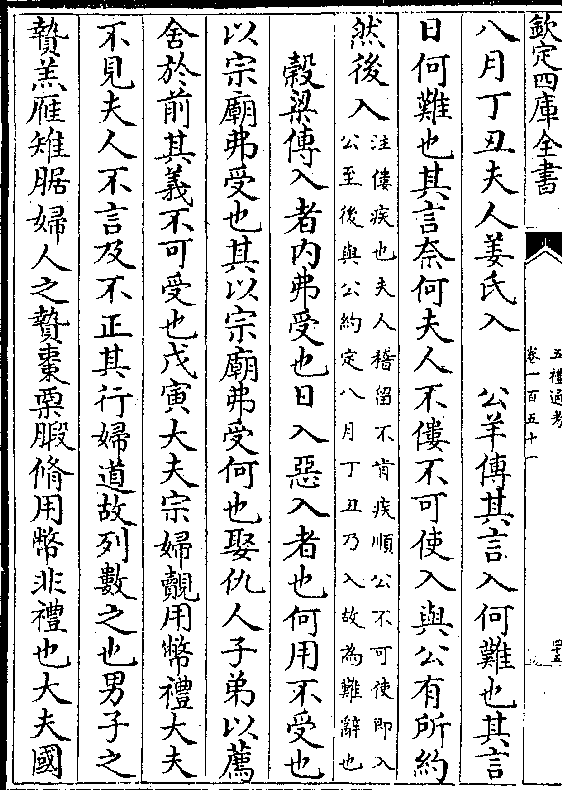 欽定四庫全書
五禮通考
卷一百五十一
八月丁丑夫人姜氏入　公羊傳其言入何難也其言
日何難也其言奈何夫人不僂不可使入與公有所約
然後入
注僂疾也夫人稽留不肯疾順公不可使即入
公至後與公約定八月丁丑乃入故為難辭也
穀梁傳入者内弗受也日入惡入者也何用不受也
以宗廟弗受也其以宗廟弗受何也娶仇人子弟以薦
舍於前其義不可受也戊寅大夫宗婦覿用幣禮大夫
不見夫人不言及不正其行婦道故列數之也男子之
贄羔雁雉腒婦人之贄棗栗腶脩用幣非禮也大夫國